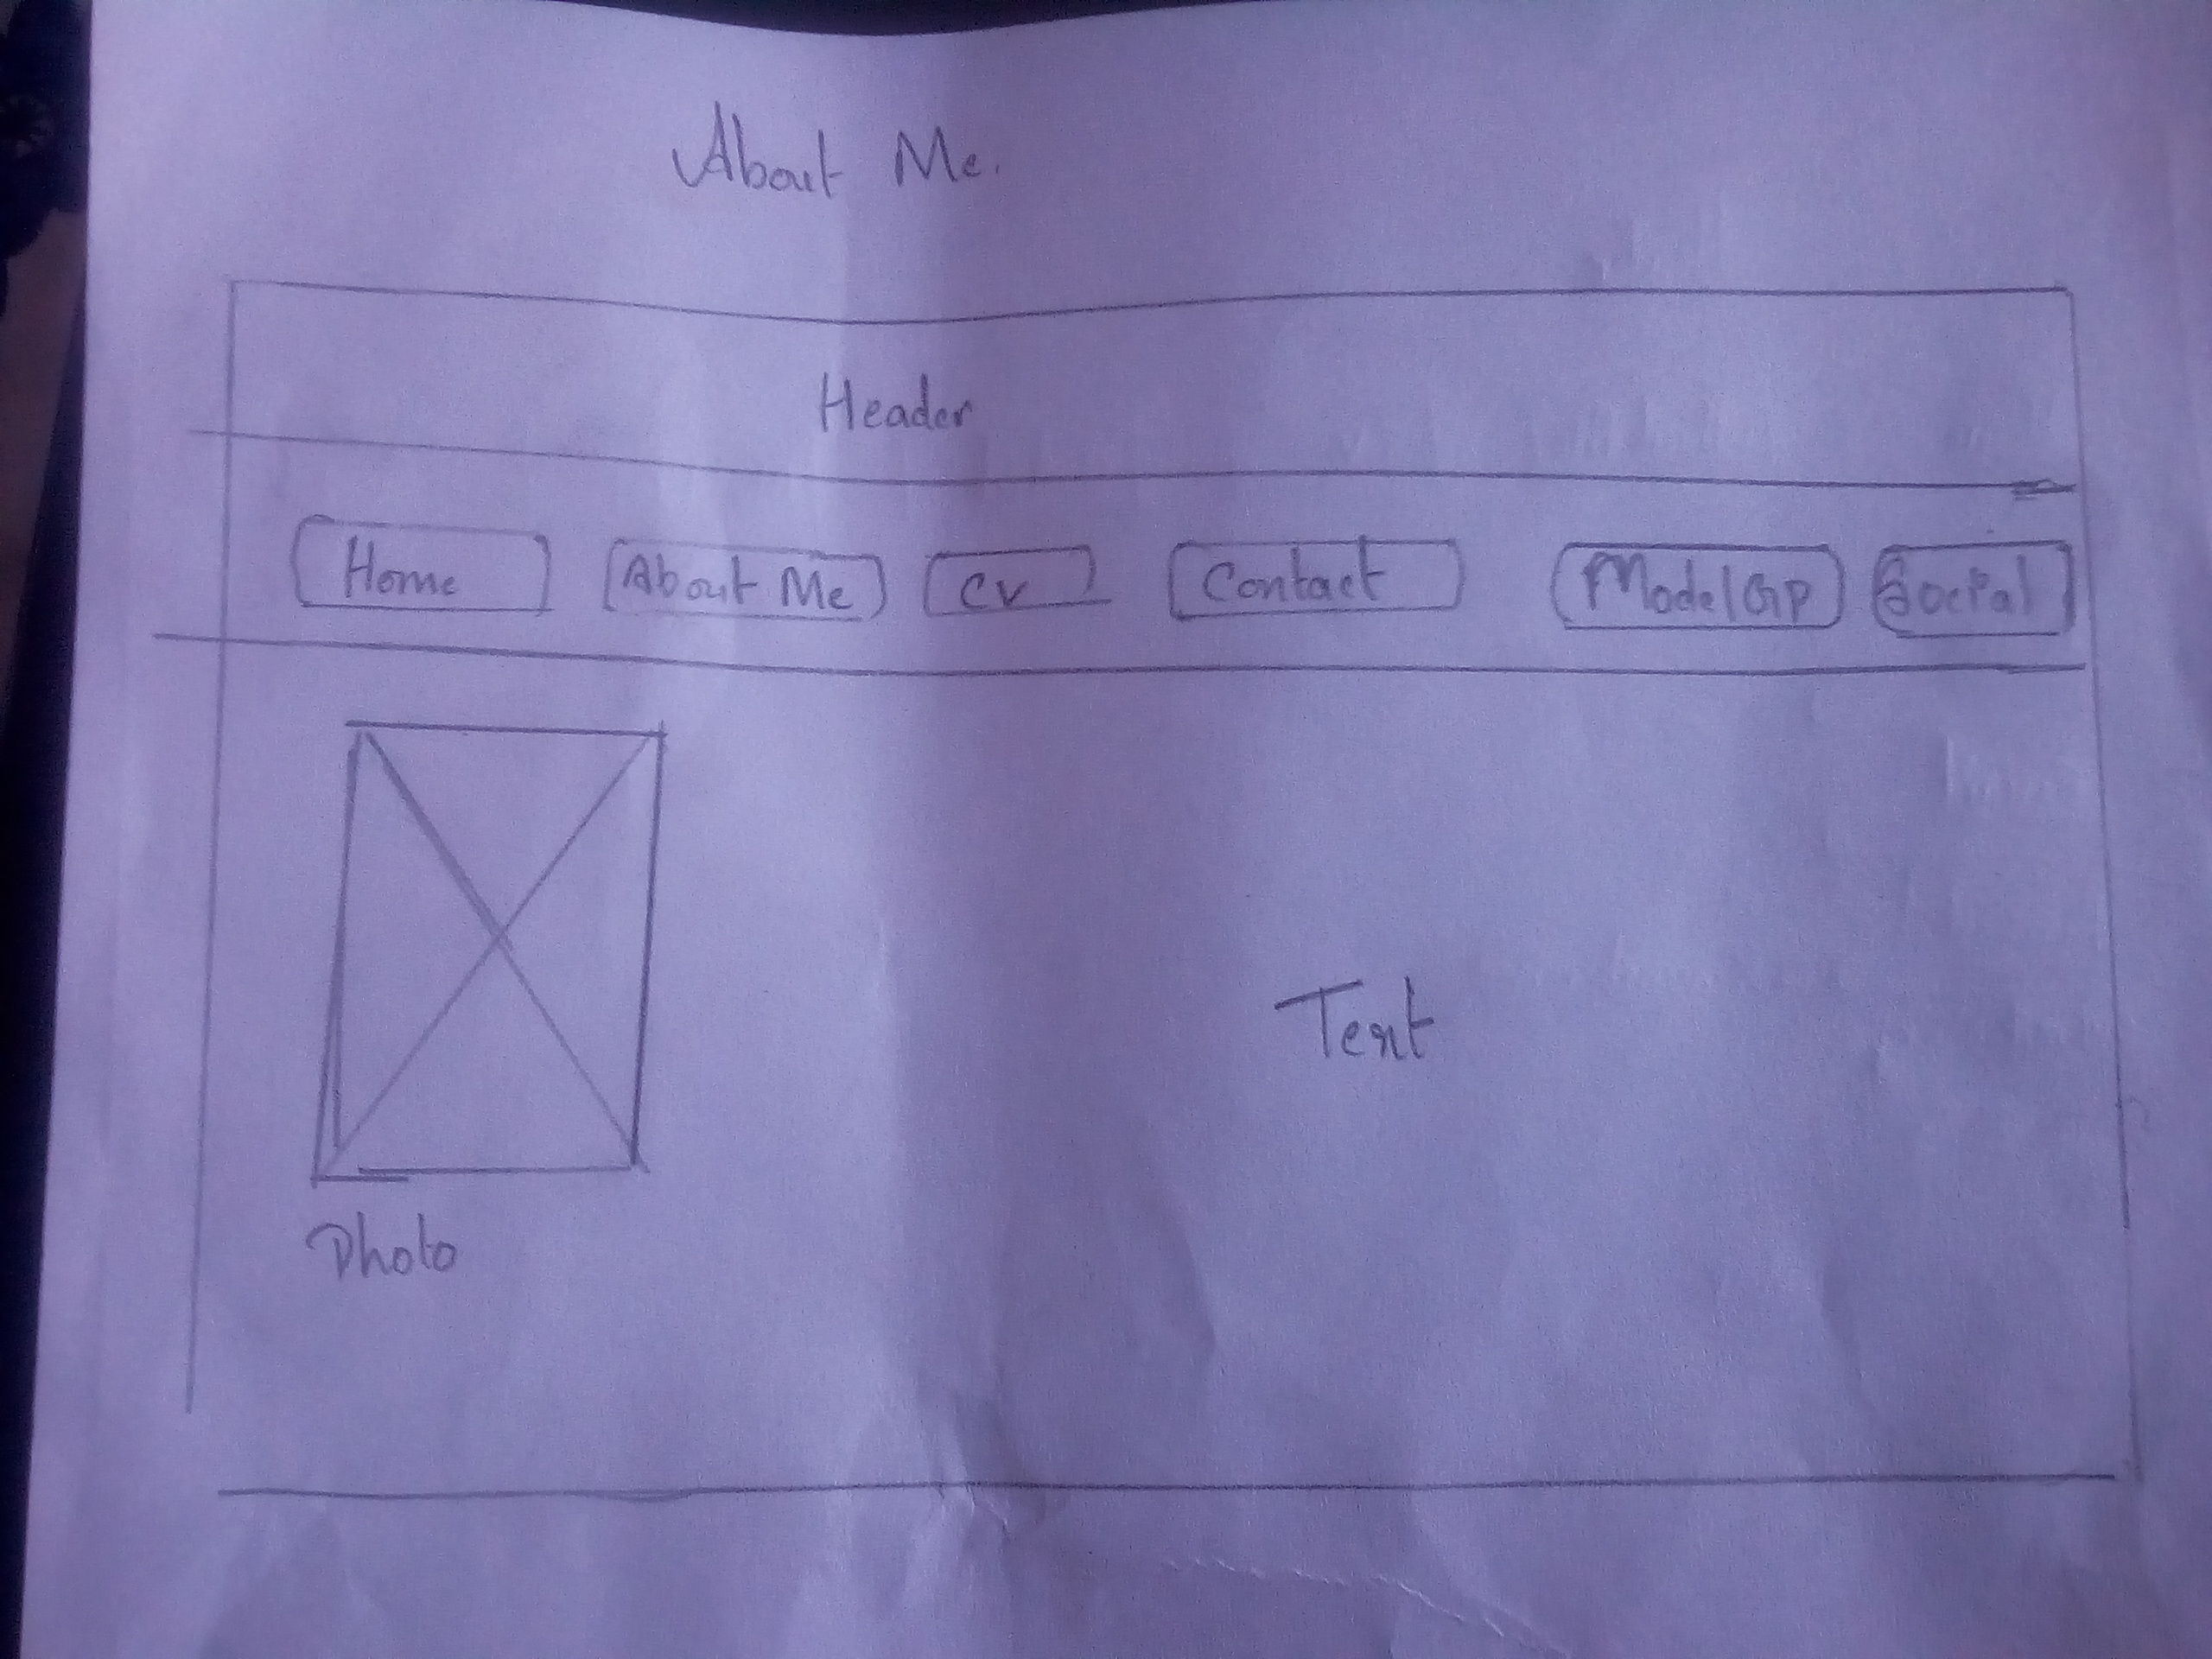 About Me.
Header
Home About Me CV Contact ModelGP Social
Text
Photo